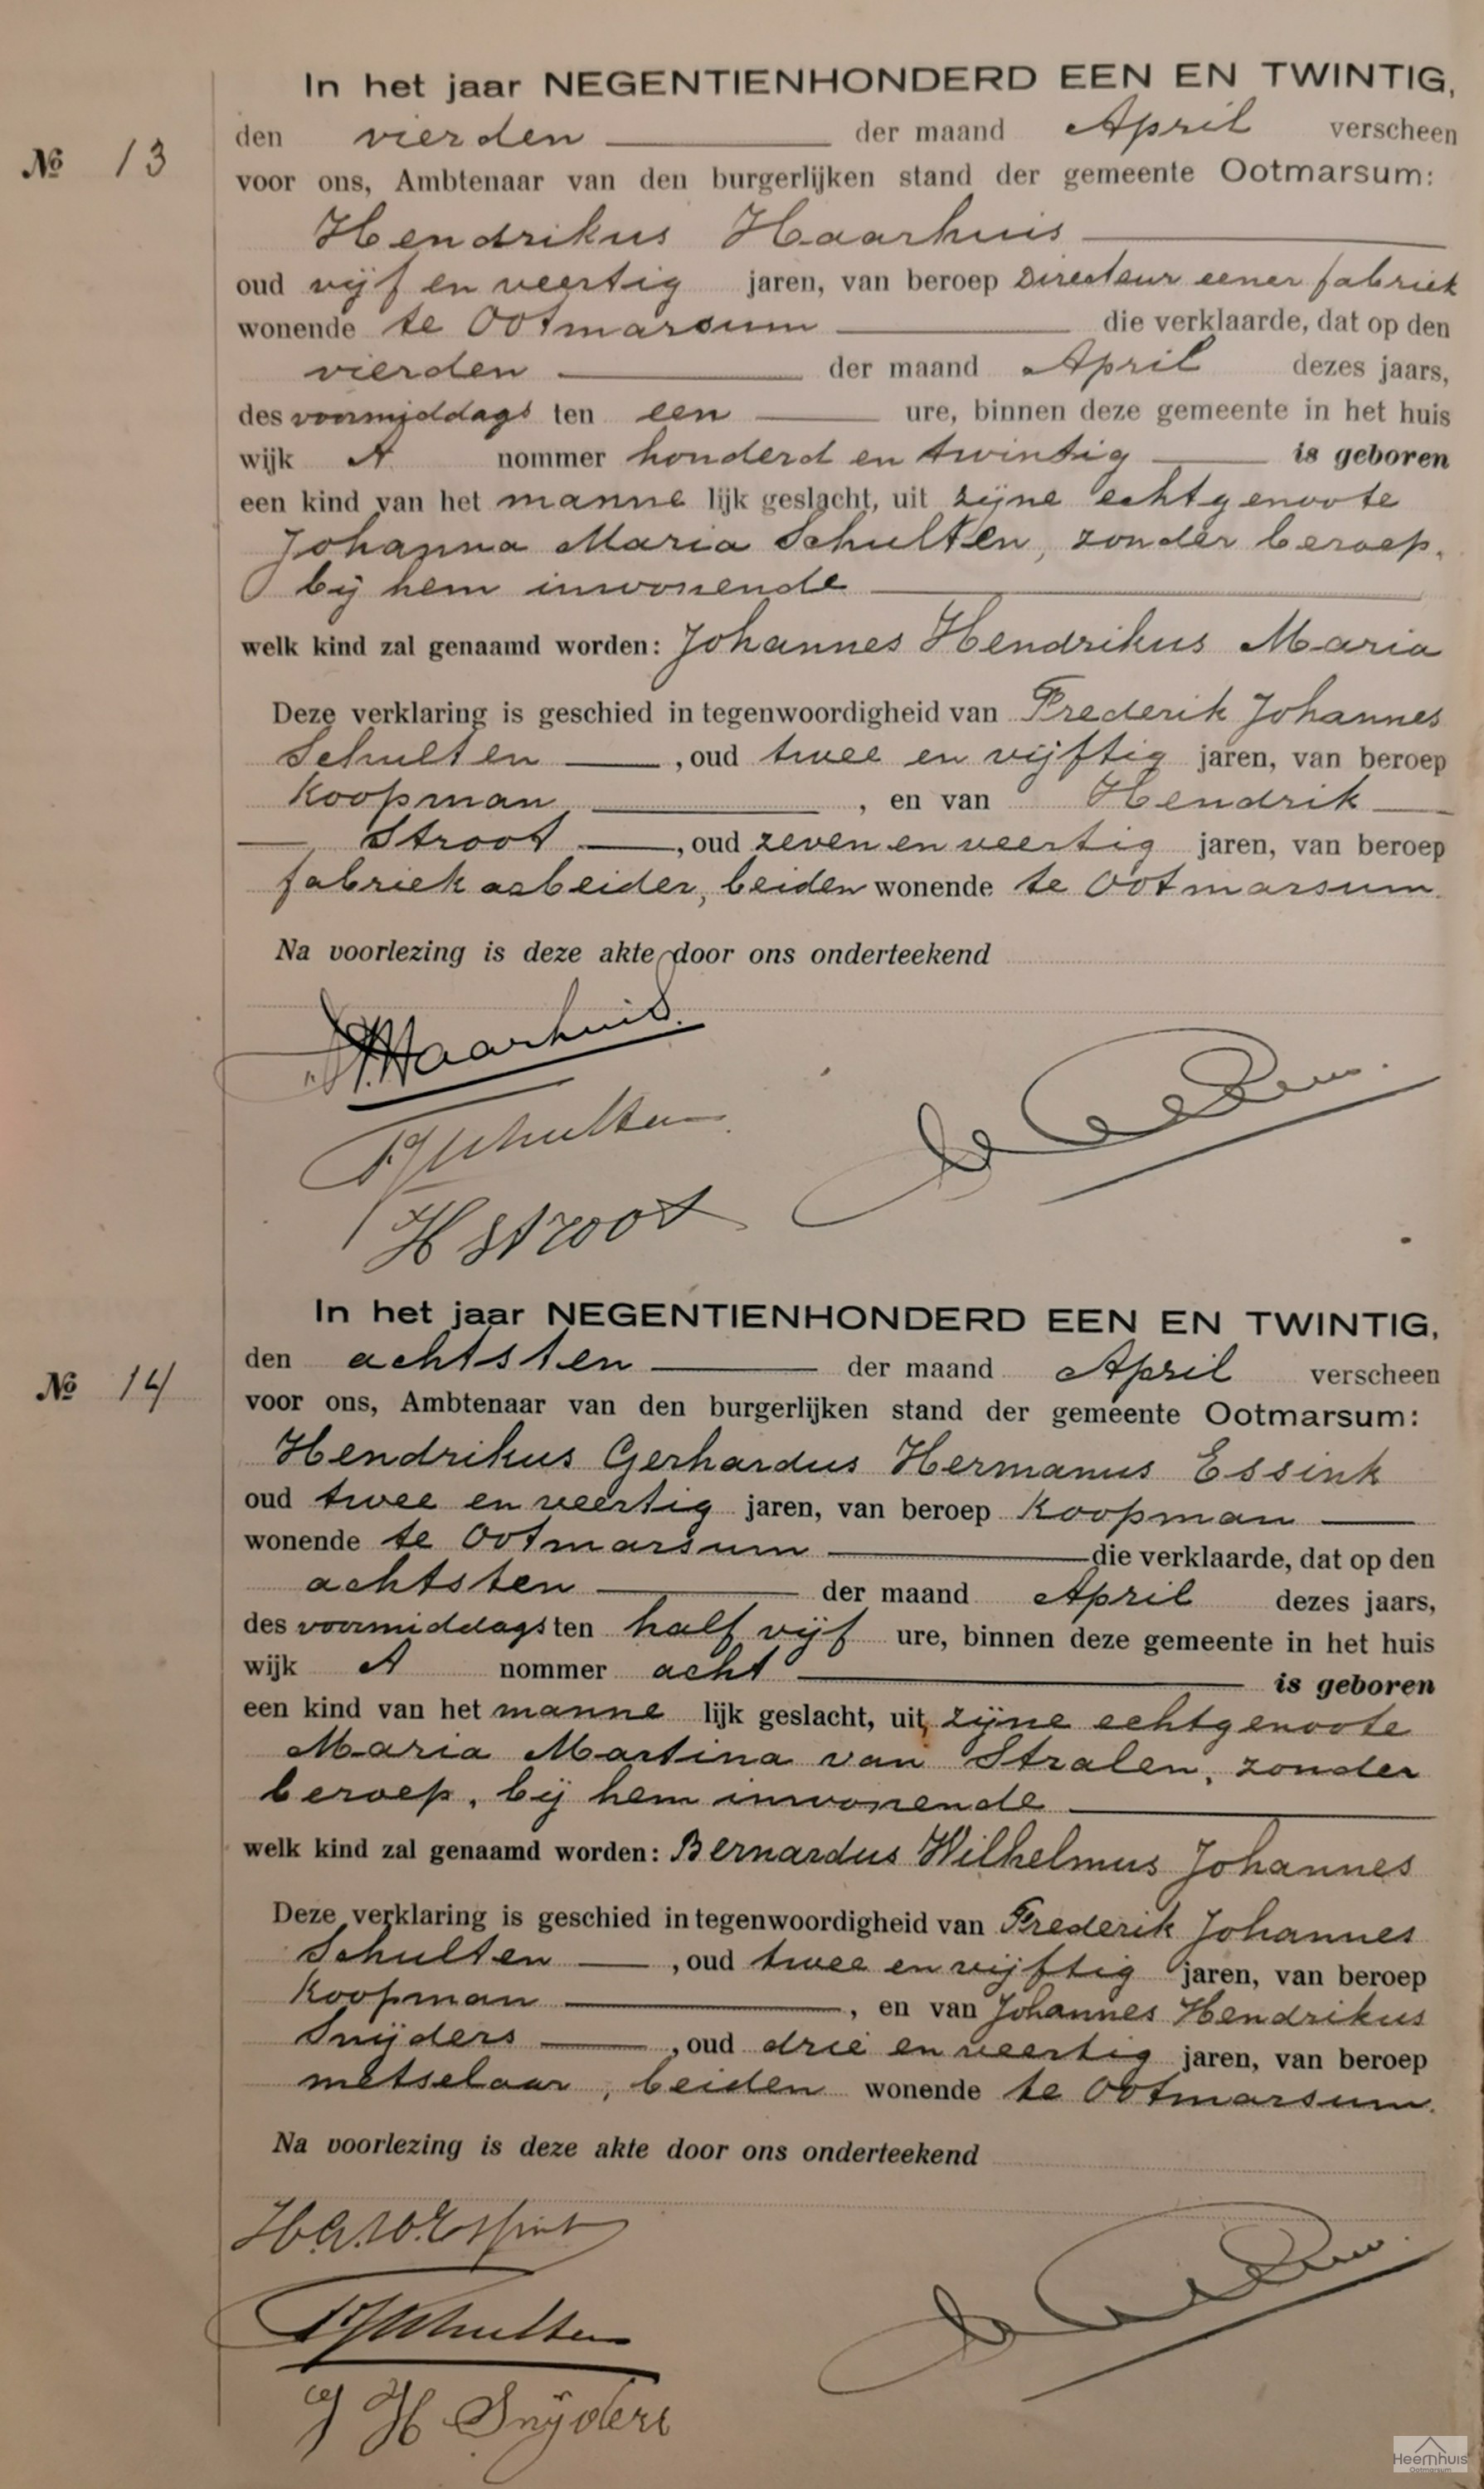 In het jaar NEGENTIENHONDERD EEN EN TWINTIG,
den vierden der maand April verscheen
No 13
voor ons, Ambtenaar van den burgerlijken stand der gemeente Ootmarsum:
Hendrikus Haarhuis
oud vijf en veertig jaren, van beroep Directeur eener fabriek
wonende te Ootmarsum die verklaarde, dat op den
vierden der maand April dezes jaars,
des voormiddags ten een ure, binnen deze gemeente in het huis
wijk A nommer honderd en twintig is geboren
een kind van het manne lijk geslacht, uit zijne echtgenoote
Johanna Maria Schulten, zonder beroep,
bij hem inwonende
welk kind zal genaamd worden: Johannes Hendrikus Maria
Deze verklaring is geschied in tegenwoordigheid van Frederik Johannes
Schulten, oud twee en vijftig jaren, van beroep
Koopman, en van Hendrik
Stroot, oud zeven en veertig jaren, van beroep
fabriekarbeider, beiden wonende te Ootmarsum.
Na voorlezing is deze akte door ons onderteekend
Haarhuis.
FJSchulten
H Stroot
In het jaar NEGENTIENHONDERD EEN EN TWINTIG,
den achtsten der maand April verscheen
No 14
voor ons, Ambtenaar van den burgerlijken stand der gemeente Ootmarsum:
Hendrikus Gerhardus Hermanus Essink
oud twee en veertig jaren, van beroep Koopman
wonende te Ootmarsum die verklaarde, dat op den
achtsten der maand April dezes jaars,
des voormiddags ten half vijf ure, binnen deze gemeente in het huis
wijk A nommer acht is geboren
een kind van het manne lijk geslacht, uit zijne echtgenoote
Maria Martina van Stralen, zonder
beroep, bij hem inwonende
welk kind zal genaamd worden: Bernardus Wilhelmus Johannes
Deze verklaring is geschied in tegenwoordigheid van Frederik Johannes
Schulten, oud twee en vijftig jaren, van beroep
Koopman, en van Johannes Hendrikus
Snijders, oud drie en veertig jaren, van beroep
metselaar, beiden wonende te Ootmarsum.
Na voorlezing is deze akte door ons onderteekend
FJSchulten
J H Snijders
Heemhuis
Ootmarsum